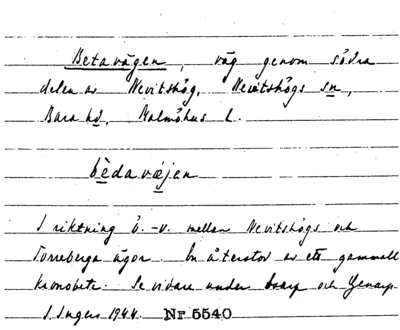 Betavägen, väg genom södra
delen av Nevitshög, Nevitshögs sn,
Bara hd, Malmöhus l.
bèdavæjen
I riktning ö.-v. mellan Nevitshögs och
Torreberga ägor. En återstod av ett gammalt
kronobete. Se vidare under och Genarp.
I. Ingers 1944. Nr 5540